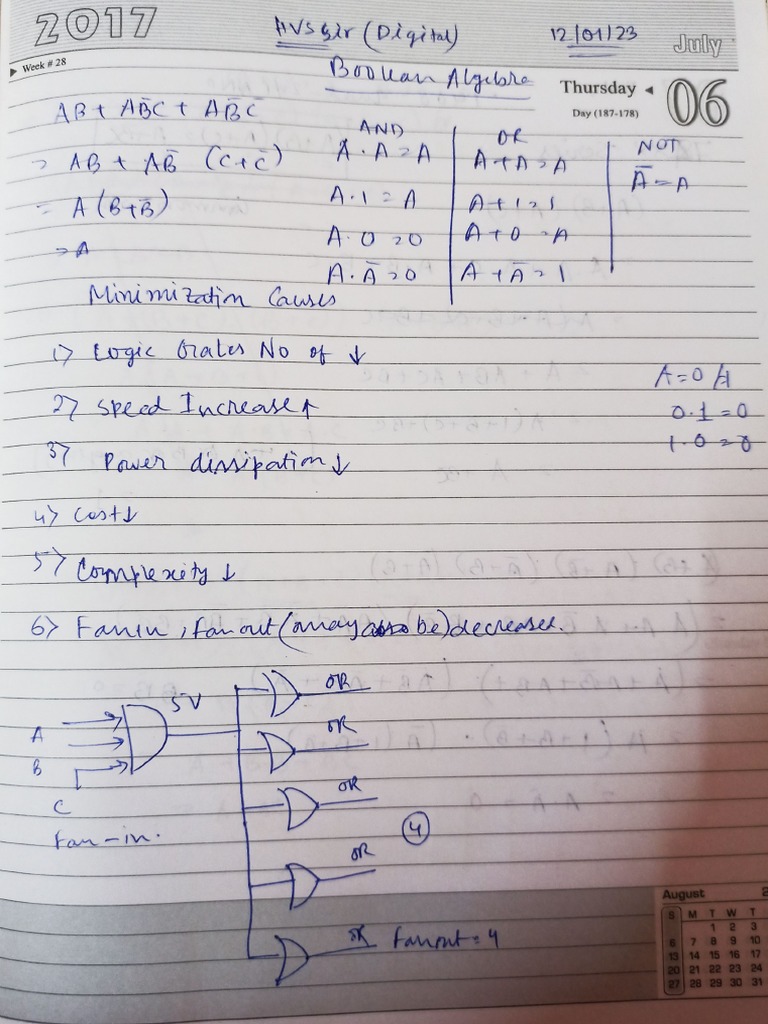 2017
HVS Sir (Digital)
12/01/23
July
Week # 28
Boolean Algebra
Thursday
Day (187-178)
06
AB + AB̄C + AB̄C̄
= AB + AB̄ (C + C̄)
= A(B+B̄)
= A
AND
A·A = A
A·1 = A
A·0 = 0
A·Ā = 0
OR
A+A = A
A+1 = 1
A+0 = A
A+Ā = 1
NOT
Ā̄ = A
Minimization Causes
1) Logic Gates No of ↓
2) Speed Increase ↑
3) Power dissipation ↓
4) Cost ↓
5) Complexity ↓
A=0/1
0·1=0
1·0=0
6) Fan in, fan out (may be) decreases.
5V
A
B
C
Fan-in.
OR
OR
OR
4
OR
OR
Fanout = 4
August
S M T W T
1 2 3
6 7 8 9 10
13 14 15 16 17
20 21 22 23 24
27 28 29 30 31